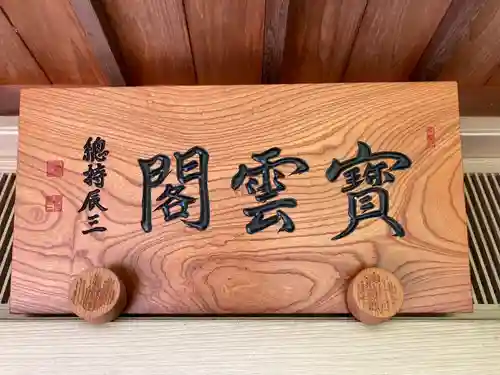 寶雲閣
總持辰三